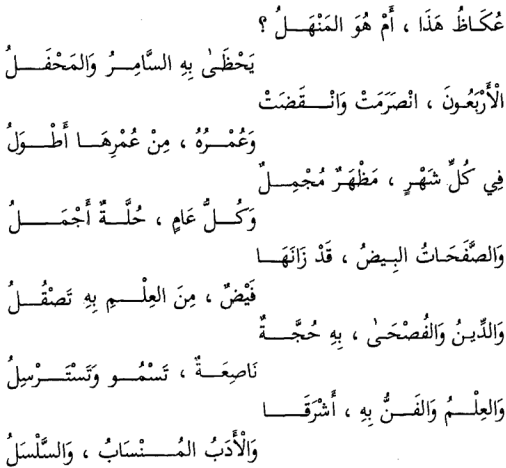 عُكَاظُ هَذَا ، أَمْ هُوَ المَنْهَلُ ؟
يَحْظَىٰ بِهِ السَّامِرُ وَالمَحْفَلُ
الْأَرْبَعُونَ ، انْصَرَمَتْ وَانْقَضَتْ
وَعُمْرُهُ ، مِنْ عُمْرِهَا أَطْوَلُ
فِي كُلِّ شَهْرٍ ، مَظْهَرٌ مُجْمِلٌ
وَكُلُّ عَامٍ ، حُلَّةٌ أَجْمَلُ
وَالصَّفَحَاتُ البِيضُ ، قَدْ زَانَهَا
فَيْضٌ ، مِنَ العِلْمِ بِهِ تَصْقُلُ
وَالدِّينُ وَالفُصْحَىٰ ، بِهِ حُجَّةٌ
نَاصِعَةٌ ، تَسْمُو وَتَسْتَرْسِلُ
وَالعِلْمُ وَالفَنُّ بِهِ ، أَشْرَقَا
وَالْأَدَبُ المُنْسَابُ ، وَالسَّلْسَلُ